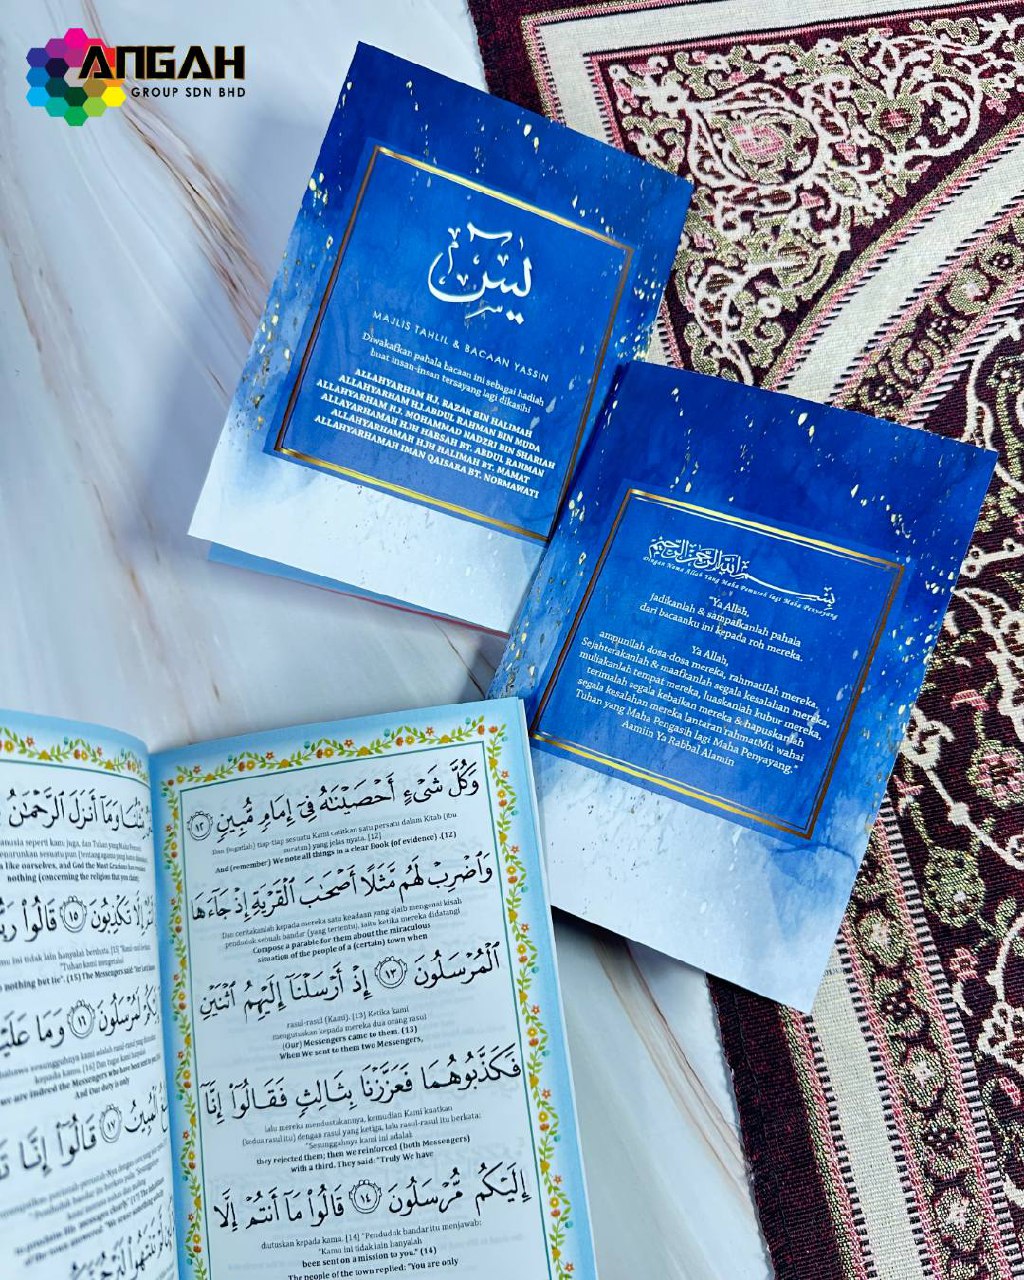 ANGAH
GROUP SDN BHD
يس
MAJLIS TAHLIL & BACAAN YASSIN
Diwakafkan pahala bacaan ini sebagai hadiah
buat insan-insan tersayang lagi dikasihi
ALLAHYARHAM HJ. RAZAK BIN HALIMAH
ALLAHYARHAM HJ.ABDUL RAHMAN BIN MUDA
ALLAHYARHAM HJ. MOHAMMAD NADZRI BIN SHARIAH
ALLAYARHAMAH HJH HABSAH BT. ABDUL RAHMAN
ALLAHYARHAMAH HJH HALIMAH BT. MAMAT
ALLAHYARHAMAH IMAN QAISARA BT. NORMAWATI
بسم الله الرحمن الرحيم
Dengan Nama Allah Yang Maha Pemurah lagi Maha Penyayang
"Ya Allah,
jadikanlah & sampaikanlah pahala
dari bacaanku ini kepada roh mereka.
Ya Allah,
ampunilah dosa-dosa mereka, rahmatilah mereka.
Sejahterakanlah & maafkanlah segala kesalahan mereka,
muliakanlah tempat mereka, luaskanlah kubur mereka,
terimalah segala kebaikan mereka & hapuskanlah
segala kesalahan mereka lantaran rahmatMu wahai
Tuhan yang Maha Pengasih lagi Maha Penyayang."
Aamiin Ya Rabbal Alamin
وَمَآ أَنزَلَ ٱلرَّحْمَٰنُ
manusia seperti kami juga, dan Tuhan Yang Maha Pemurah
menurunkan sesuatupun (tentang agama yang kamu
like ourselves, and God the Most Gracious
nothing (concerning the religion that you claim)
إِلَّا تَكْذِبُونَ ١٥ قَالُوا۟
ini tidak lain hanyalah berdusta. [15]
"Tuhan kami mengetahui
nothing but lie". (15) The Messengers said:
لَمُرْسَلُونَ ١٦ وَمَا عَلَيْنَا
bahawa sesungguhnya kami adalah
kepada kamu. [16] Dan tugas kami hanyalah
we are indeed the Messengers who have been sent to you
And Our duty is only
ٱلْمُبِينُ ١٧ قَالُوٓا۟ إِنَّا
وَكُلَّ شَىْءٍ أَحْصَيْنَٰهُ فِىٓ إِمَامٍ مُّبِينٍ ١٢
Dan (ingatlah) tiap-tiap sesuatu Kami catatkan satu persatu dalam Kitab (ibu
suratan) yang jelas nyata. [12]
And (remember) We note all things in a clear Book (of evidence) .(12)
وَٱضْرِبْ لَهُم مَّثَلًا أَصْحَٰبَ ٱلْقَرْيَةِ إِذْ جَآءَهَا
Dan ceritakanlah kepada mereka satu keadaan yang ajaib mengenai kisah
penduduk sebuah bandar (yang tertentu), iaitu ketika mereka didatangi
Compose a parable for them about the miraculous
situation of the people of a (certain) town when
ٱلْمُرْسَلُونَ ١٣ إِذْ أَرْسَلْنَآ إِلَيْهِمُ ٱثْنَيْنِ
rasul-rasul (Kami). [13] Ketika kami
mengutuskan kepada mereka dua orang rasul
(Our) Messengers came to them. (13)
When We sent to them two Messengers,
فَكَذَّبُوهُمَا فَعَزَّزْنَا بِثَالِثٍ فَقَالُوٓا۟ إِنَّآ
lalu mereka mendustakannya, kemudian Kami kuatkan
(kedua rasul itu) dengan rasul yang ketiga, lalu rasul-rasul itu berkata:
"Sesungguhnya kami ini adalah
they rejected them; then we reinforced (both Messengers)
with a third. They said: "Truly We have
إِلَيْكُم مُّرْسَلُونَ ١٤ قَالُوا۟ مَآ أَنتُمْ إِلَّا
diutuskan kepada kamu. [14] "Penduduk bandar itu menjawab:
"Kamu ini tidak lain hanyalah
been sent on a mission to you." (14)
The people of the town replied: "You are only